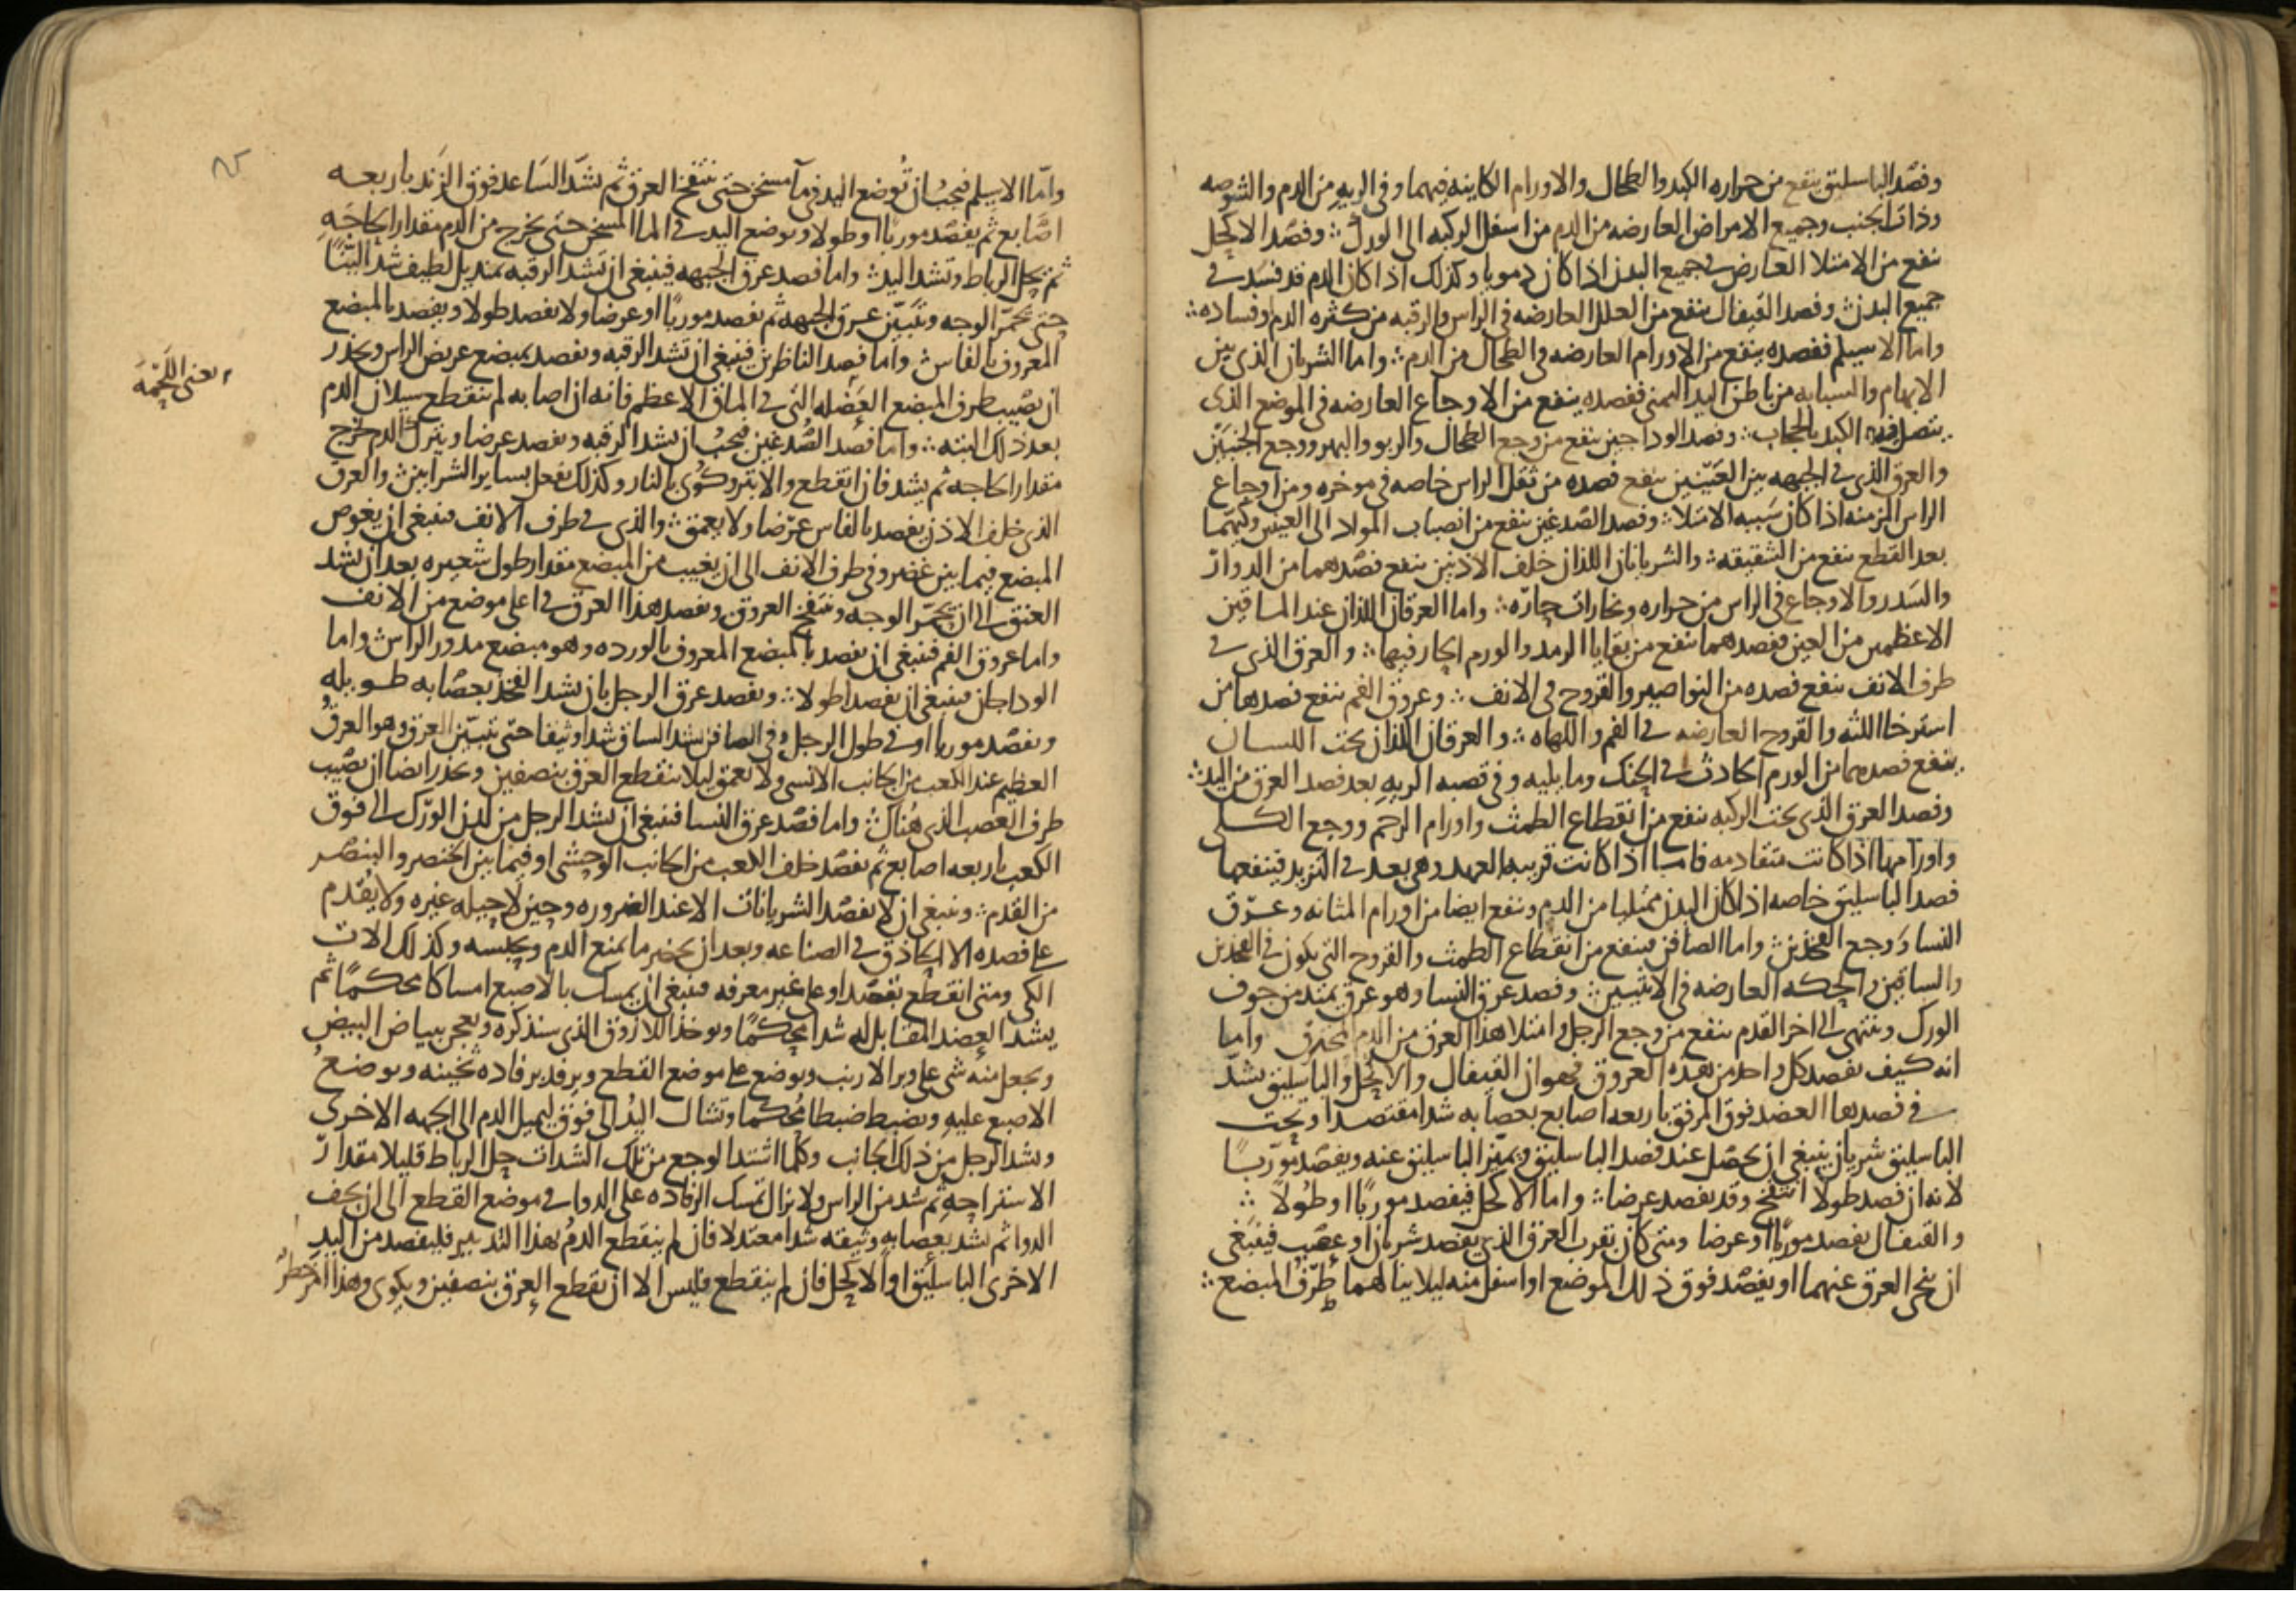 وفصد الباسليق ينفع من حراره الكبد والطحال والاورام الكاينه فيهما وفي الريه من الدم والشوصه
وذات الجنب وجميع الامراض العارضه من الدم من اسفل الركبه الى الورك ؞ وفصد الاكحل
ينفع من الامتلا العارض في جميع البدن اذا كان دمويا وكذلك اذا كان الدم قد فسد في
جميع البدن ؞ وفصد القيفال ينفع من العلل العارضه في الراس والرقبه من كثره الدم وفساده ؞
واما الاسيلم ففصده ينفع من الاورام العارضه في الطحال من الدم ؞ واما الشريان الذي بين
الابهام والسبابه من باطن اليد اليمنى ففصده ينفع من الاوجاع العارضه في الموضع الذي
يتصل فيه الكبد بالحجاب ؞ وفصد الوداجين ينفع من وجع الطحال والربو والبهر ووجع الجنبين
والعرق الذي في الجبهه بين العينين ينفع فصده من ثقل الراس خاصه في موخره ومن اوجاع
الراس المزمنه اذا كان سببه الامتلا ؞ وفصد الصدغين ينفع من انصباب المواد الى العينين وكيهما
بعد القطع ينفع من الشقيقه ؞ والشريانان اللذان خلف الاذنين ينفع فصدهما من الدوار
والسدر والاوجاع في الراس من حراره وبخارات حاره ؞ واما العرقان اللذان عند الماقين
الاعظمين من العين ففصدهما ينفع من بقايا الرمد والورم الحار فيها ؞ والعرق الذي في
طرف الانف ينفع فصده من النواصير والقروح في الانف ؞ وعروق الفم ينفع فصدها من
استرخا اللثه والقروح العارضه في الفم واللهاه ؞ والعرقان اللذان تحت اللسان
ينفع فصدهما من الورم الحادث في الحنك وما يليه وفي قصبه الريه بعد فصد العرق من اليد ؞
وفصد العرق الذي تحت الركبه ينفع من انقطاع الطمث واورام الرحم ووجع الكلى
واورامها اذا كانت متقادمه فاما اذا كانت قريبه العهد وهي بعد في التزيد فينفعها
فصد الباسليق خاصه اذا كان البدن ممتليا من الدم وينفع ايضا من اورام المثانه وعرق
النسا ووجع الفخذين ؞ واما الصافن فينفع من انقطاع الطمث والقروح التي يكون في الفخذين
والساقين والحكه العارضه في الانثيين ؞ وفصد عرق النسا وهو عرق يمتد من جوف
الورك وينتهى الى اخر القدم ينفع من وجع الرجل وامتلا هذا العرق من الدم المحترق واما
انه كيف يفصد كل واحد من هذه العروق فهو ان القيفال والاكحل والباسليق يشد
في فصدها العضد فوق المرفق باربعه اصابع بعصابه شدا مقتصدا وتحت
الباسليق شريان ينبغي ان يحصل عند فصد الباسليق ويميز الباسليق عنه ويفصد موربا
لانه ان فصد طولا انتفخ وقد يفصد عرضا ؞ واما الاكحل فيفصد موربا او طولا ؞
والقيفال يفصد موربا او عرضا ومتى كان بقرب العرق الذي يفصد شريان او عصب فينبغي
ان ينحى العرق عنهما او يفصد فوق ذلك الموضع او اسفل منه ليلا ينالهما طرف المبضع ؞
واما الاسيلم فيجب ان توضع اليد في ما مسخن حتى ينتفخ العرق ثم تشد الساعد فوق الزند باربعه
اصابع ثم يفصد موربا او طولا وتوضع اليد في الما المسخن حتى يخرج من الدم مقدار الحاجه
ثم يحل الرباط وتشد اليد ؞ واما فصد عرق الجبهه فينبغي ان تشد الرقبه بمنديل لطيف شد
حتى يحمر الوجه وتبين عرق الجبهه ثم يفصد موربا او عرضا ولا يفصد طولا ويفصد بالمبضع
المعروف بالفاس ؞ واما فصد الناظرين فينبغي ان تشد الرقبه ويفصد بمبضع عريض الراس ويحذر
ان يصيب طرف المبضع العضله التي في الماق الاعظم فانه ان اصابه لم ينقطع سيلان الدم
بعد ذلك البته ؞ واما فصد الصدغين فيجب ان تشد الرقبه ويفصد عرضا ويترك الدم يخرج
مقدار الحاجه ثم يشد فان انقطع والا بتر وكوى بالنار وكذلك يفعل بساير الشرايين ؞ والعرق
الذي خلف الاذن يفصد بالفاس عرضا ولا يعمق ؞ والذي في طرف الانف فينبغي ان يغوص
المبضع فيما بين غضروفى طرف الانف الى ان يغيب من المبضع مقدار طول شعيره بعد ان تشد
العنق الى ان يحمر الوجه وتنتفخ العروق ويفصد هذا العرق في اعلى موضع من الانف
واما عروق الفم فينبغي ان يفصد بالمبضع المعروف بالورده وهو مبضع مدور الراس ؞ واما
الوداجان فينبغي ان يفصدا طولا ؞ ويفصد عرق الرجل بان تشد الفخذ بعصابه طويله
ويفصد موربا او في طول الرجل وفي الصافن تشد الساق شدا وثيقا حتى يتبين العرق وهو العرق
العظيم عند الكعب من الجانب الانسي ولا يعمق ليلا ينقطع العرق بنصفين ويحذر ايضا ان يصيب
طرف العصب الذي هناك ؞ واما فصد عرق النسا فينبغي ان تشد الرجل من لدن الورك الى فوق
الكعب باربعه اصابع ثم يفصد خلف الكعب من الجانب الوحشى او فيما بين الخنصر والبنصر
من القدم ؞ وينبغي ان لا يفصد الشريانات الا عند الضروره وحين لا حيله غيره ولا يقدم
على فصده الا الحاذق في الصناعه وبعد ان يحضر ما يمنع الدم ويحبسه وكذلك الات
الكى ومتى انقطع بقصد او على غير معرفه فينبغي ان يمسك بالاصبع امساكا محكما ثم
يشد العضد المقابل له شدا محكما ويوخذ اللازوق الذي سنذكره ويعجن ببياض البيض
ويجعل منه شى على وبر الارنب ويوضع على موضع القطع ويرفد برفاده ثخينه ويوضع
الاصبع عليه ويضبط ضبطا محكما وتشال اليد الى فوق ليميل الدم الى الجهه الاخرى
ويشد الرجل من ذلك الجانب وكلما اشتد الوجع من تلك الشدات حل الرباط قليلا مقدار
الاستراحه ثم شد من الراس ولا يزال تمسك الرفاده على الدوا في موضع القطع الى ان يجف
الدوا ثم تشد بعصابه وثيقه شدا معتدلا فان لم ينقطع الدم بهذا التدبير فليفصد من اليد
الاخرى الباسليق او الاكحل فان لم ينقطع فليس الا ان يقطع العرق بنصفين ويكوى وهذا امر خطر
يعنى اللحمه